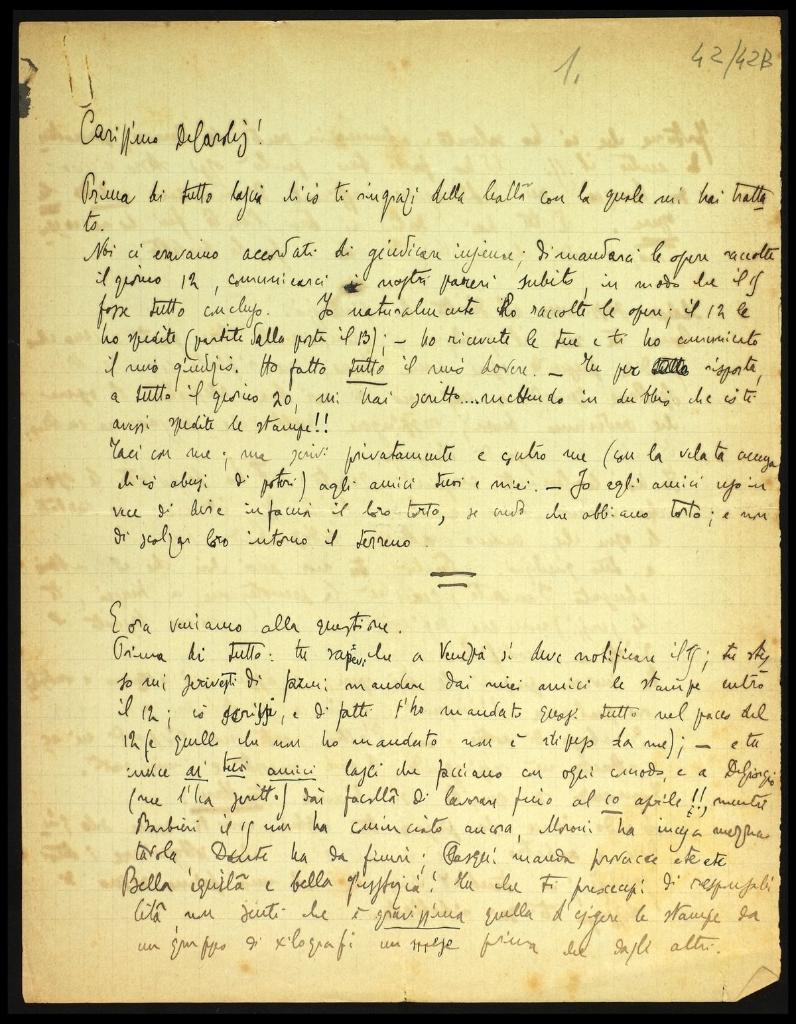 1.
42/42B
Carissimo DeCarolis!
Prima di tutto lascia ch'io ti ringrazi della lealtà con la quale mi hai tratta
to.
Noi ci eravamo accordati di giudicare insieme; di mandarci le opere raccolte
il giorno 12, comunicarci i nostri pareri subito, in modo che il 15
fosse tutto concluso. Io naturalmente ho raccolte le opere; il 12 le
ho spedite (partite dalla posta il 13); – ho ricevute le tue e ti ho comunicato
il mio giudizio. Ho fatto tutto il mio dovere. – Tu per risposta,
a tutto il giorno 20, mi hai scritto.... mettendo in dubbio che io ti
avessi spedite le stampe!!
Taci con me; ma scrivi privatamente e contro me (con la velata accusa
ch'io abusi di poteri) agli amici tuoi e miei. – Io agli amici uso in
vece di dire in faccia il loro torto, se credo che abbiano torto; e non
di scalzar loro intorno il terreno.
E ora veniamo alla questione.
Prima di tutto: tu sapevi che a Venezia si deve notificare il 15; tu stes
so mi scrivesti di farmi mandare dai miei amici le stampe entro
il 12; io scrissi, e di fatti t'ho mandato quasi tutto nel pacco del
12 (e quello che non ho mandato non è dipeso da me); – e tu
invece ai tuoi amici lasci che facciano con ogni comodo, e a DeGiorgio
(me l'ha scritto) dai facoltà di lavorare fino al 10 aprile!!, mentre
Barbieri il 15 non ha cominciato ancora, Moroni ha incisa mezza
tavola Dante ha da finire; manda provacce etc etc
Bella equità e bella giustizia! Tu che ti preoccupi di responsabi
lità non senti che è gravissima quella d'esigere le stampe da
un gruppo di xilografi un mese prima che dagli altri.